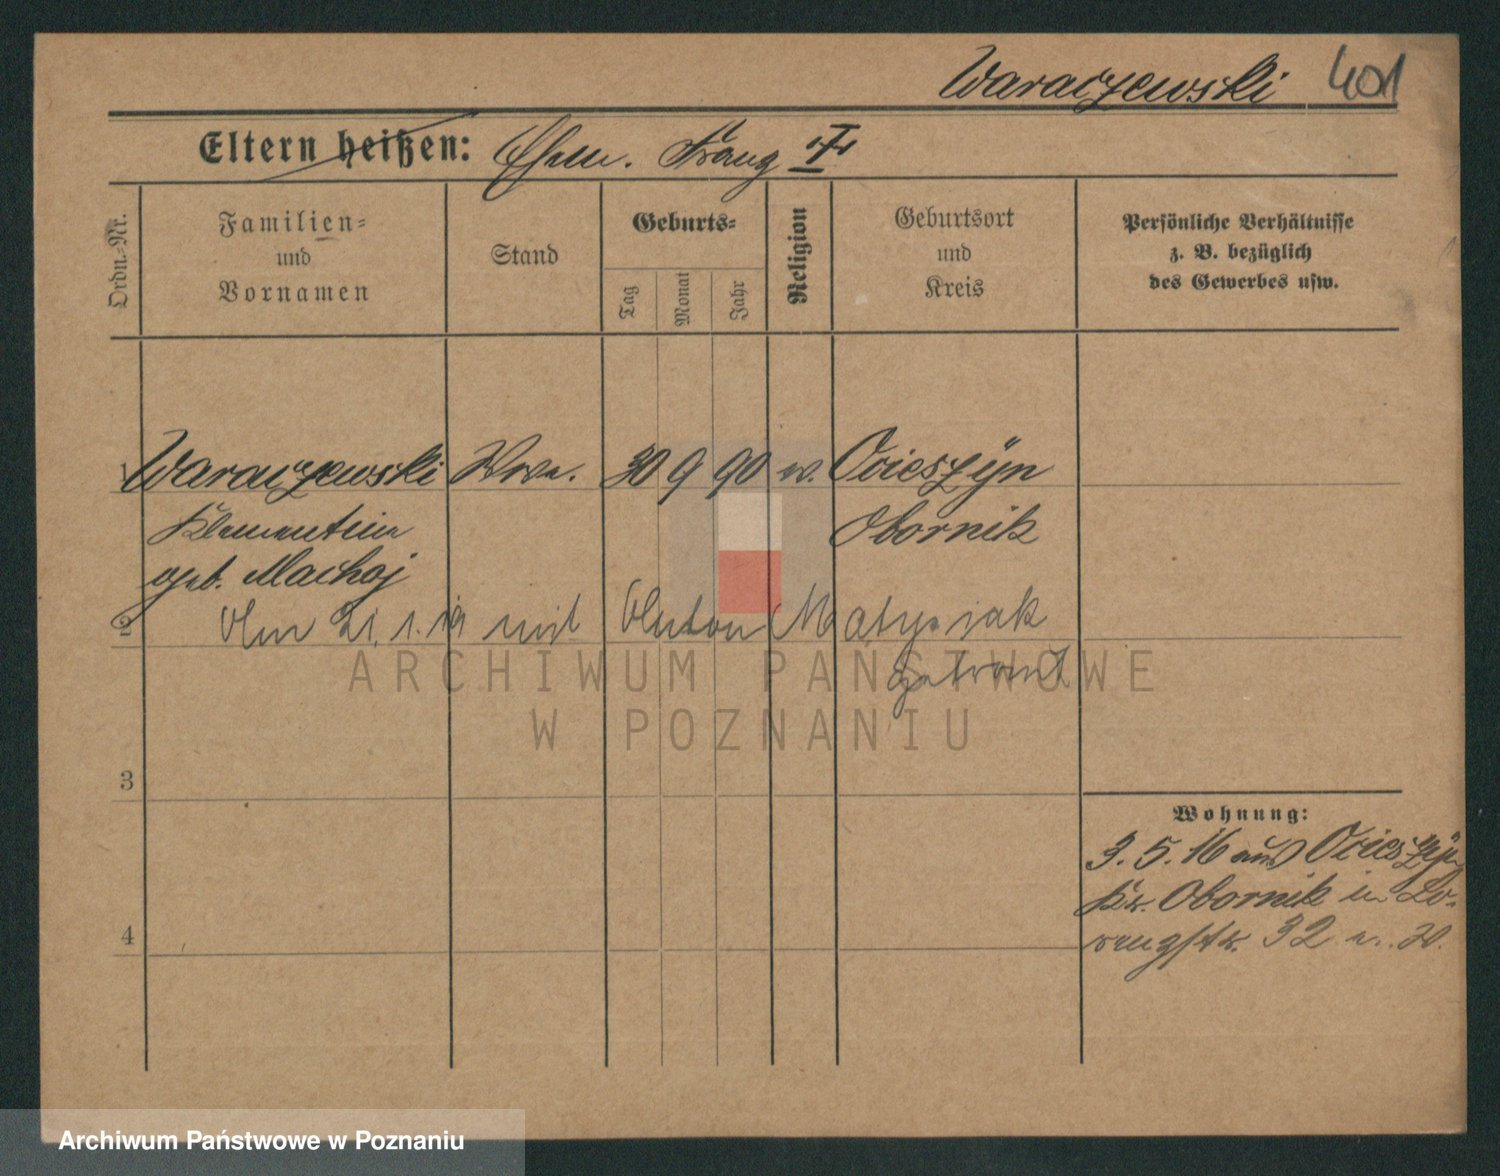 Waraczewski 401
Eltern heißen: Ehem. Franz †
Ordn.-Nr.
Familien-
und
Vornamen
Stand
Geburts-
Tag
Monat
Jahr
Religion
Geburtsort
und
Kreis
Persönliche Verhältnisse
z. B. bezüglich
des Gewerbes usw.
1 Waraczewski Wwe. 30 9 90 Ocieszyn
Klementine Obornik
geb. Machoj
2 Am 21.1.19 mit Anton Matysiak
getraut
ARCHIWUM PAŃSTWOWE
W POZNANIU
3
Wohnung:
3.5.16 aus Ocieszyn
Kr. Obornik in Lo-
4 renzstr. 32
Archiwum Państwowe w Poznaniu